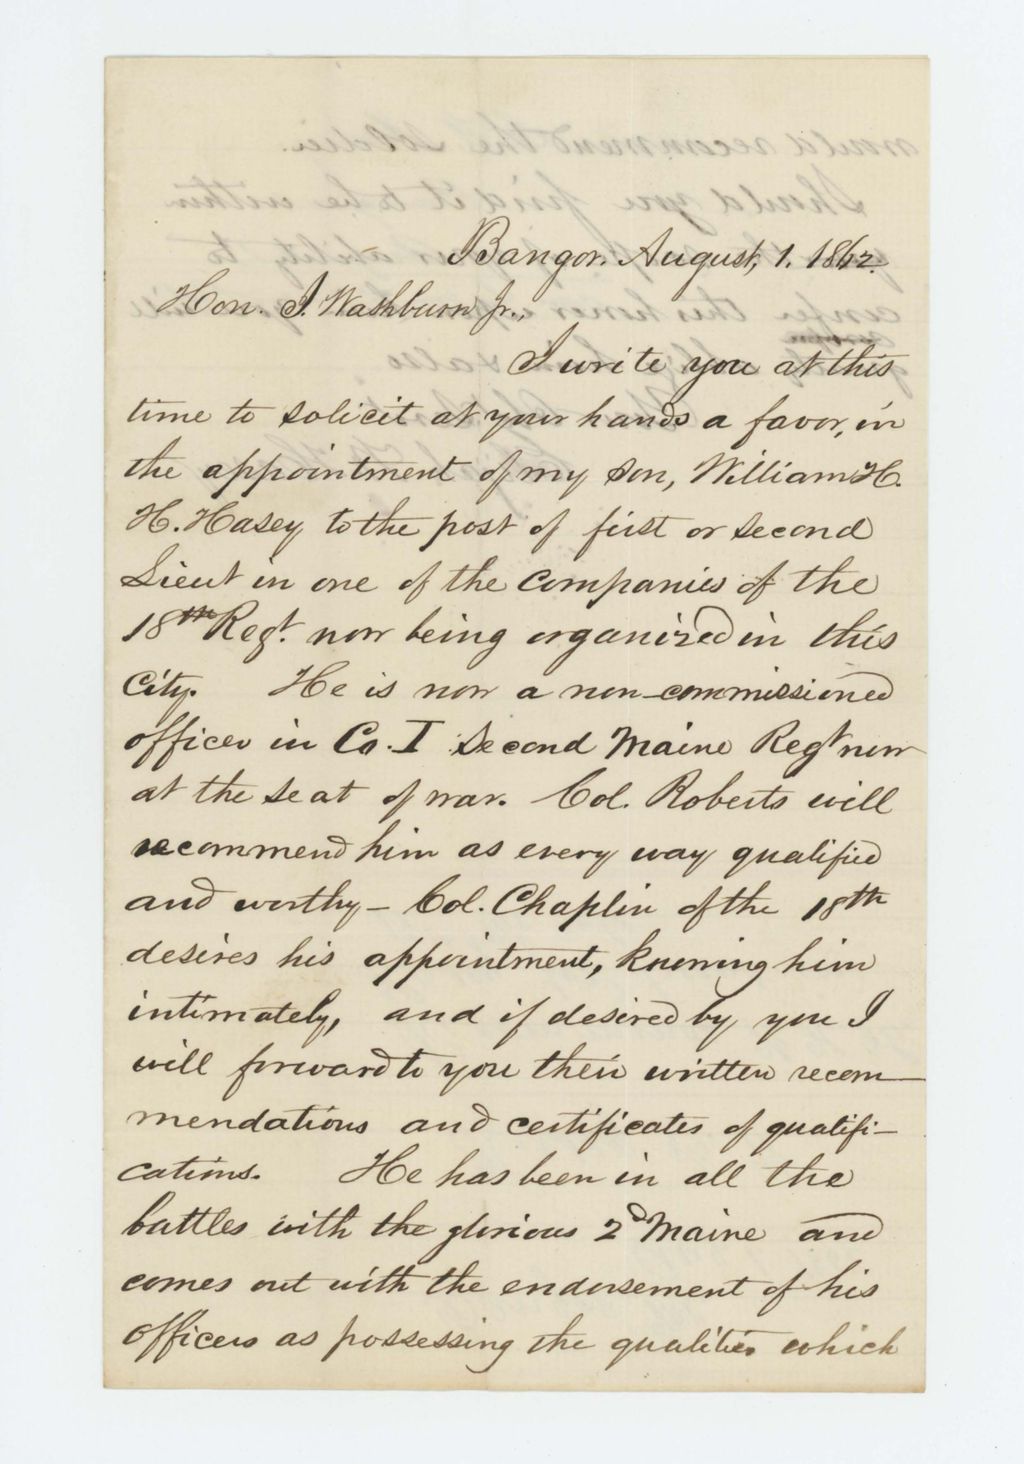 Bangor. August, 1. 1862.
Hon. I. Washburn Jr.,
I write you at this
time to solicit at your hands a favor, in
the appointment of my son, William H.
H. Hasey to the post of first or second
Lieut in one of the companies of the
18th Regt. now being organized in this
City. He is now a non-commissioned
officer in Co. I Second Maine Regt now
at the seat of war. Col. Roberts will
recommend him as every way qualified
and worthy - Col. Chaplin of the 18th
desires his appointment, knowing him
intimately, and if desired by you I
will forward to you their written recom-
mendations and certificates of qualifi-
cations. He has been in all the
battles with the glorious 2d Maine and
comes out with the endorsement of his
officers as possessing the qualities which